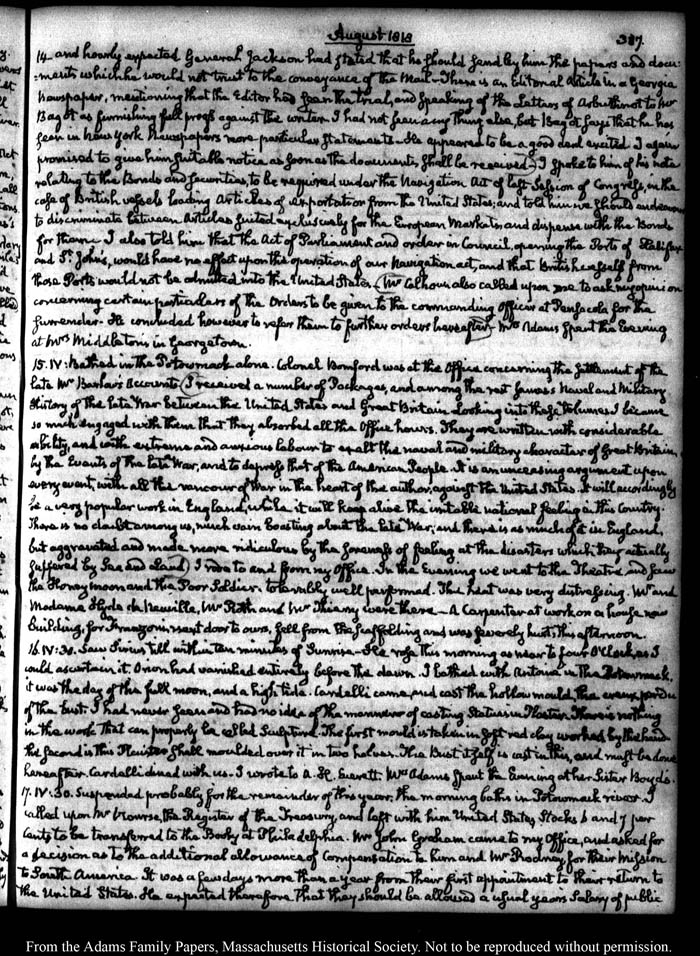 August 1818
387.
14. and hourly expected General Jackson had stated that he should send by him the papers and docu-
-ments which he would not trust to the conveyance of the Mail. There is an Editorial Article in a Georgia
Newspaper, mentioning that the Editor had seen the trial, and speaking of the Letters of Arbuthnot to Mr
Bagot as furnishing full proofs against the writer. I had not seen any thing else, but Bagot says that he has
seen in New York Newspapers more particular Statements. He appeared to be a good deal excited. I again
promised to give him suitable notice as soon as the documents, shall be received. I spoke to him of his note
relating to the Bonds and Securities, to be required under the Navigation Act of last Session of Congress, in the
case of British vessels loading Articles of exportation from the United States; and told him we should endeavour
to discriminate between Articles suited exclusively for the European Markets, and dispense with the Bonds
for them. I also told him that the Act of Parliament and order in Council, opening the Ports of Halifax
and St. John's, would have no effect upon the operation of our Navigation act, and that British vessels from
those Ports would not be admitted into the United States. Mr Calhoun also called upon me to ask my opinion
concerning certain particulars of the Orders to be given to the commanding Officer at Pensacola for the
surrender. He concluded however to refer them to further orders hereafter. Mrs Adams spent the Evening
at Mrs Middleton's in Georgetown.
15. IV: Bathed in the Potowmack alone. Colonel Bomford was at the Office concerning the settlement of the
late Mr Barlow's Accounts. I received a number of Packages, and among the rest James's Naval and Military
History of the late War between the United States and Great Britain. Looking into these Volumes I became
so much engaged with them that they absorbed all the Office hours. They are written with considerable
ability, and with extreme and anxious labour to exalt the naval and military character of Great Britain,
by the Events of the late War, and to depress that of the American People. It is an unceasing argument upon
every event, with all the rancour of War in the heart of the author, against the United States. It will accordingly
be a very popular work in England, while it will keep alive the irritable national feeling in this Country.
There is no doubt among us, much vain boasting about the late War; and there is as much of it in England,
but aggravated and made more ridiculous by the soreness of feeling at the disasters which they actually
suffered by Sea and Land. I rode to and from my Office. In the Evening we went to the Theatre and saw
the Honey moon and the Poor Soldier. tolerably well performed. The heat was very distressing. Mr and
Madame Hyde de Neuville, Mr Roth and Mr Thierry were there. A Carpenter at work on a house now
building, for Franzoni, next door to ours, fell from the scaffolding and was severely hurt, this afternoon.
16. IV:30. Saw Sirius till within ten minutes of Sunrise. He rose this morning as near to four O'Clock, as I
could ascertain it. Orion had vanished entirely before the dawn. I bathed with Antoine in the Potowmack,
it was the day of the full moon, and a high tide. Cardelli came and cast the hollow mould the creux perdu
of the bust. I had never seen and had no idea of the manner of casting Statues in Plaster. There is nothing
in the work that can properly be called Sculpture. The first mould is taken in soft red clay worked by the hand.
the second is this Plaister shell moulded over it in two halves. The Bust itself is cast in this, and must be done
hereafter. Cardelli dined with us. I wrote to A. H. Everett. Mrs Adams spent the Evening at her Sister Boyd's.
17. IV:30. Suspended probably for the remainder of this year, the morning baths in Potowmack river. I
called upon Mr Nourse, the Register of the Treasury, and left with him United States, Stocks 6 and 7 per
Cents to be transferred to the Books at Philadelphia. Mr John Graham came to my Office, and asked for
a decision as to the additional allowance of compensation to him and Mr Rodney, for their Mission
to South America. It was a few days more than a year from their first appointment to their return to
the United States. He expected therefore that they should be allowed a usual years Salary of public
From the Adams Family Papers, Massachusetts Historical Society. Not to be reproduced without permission.